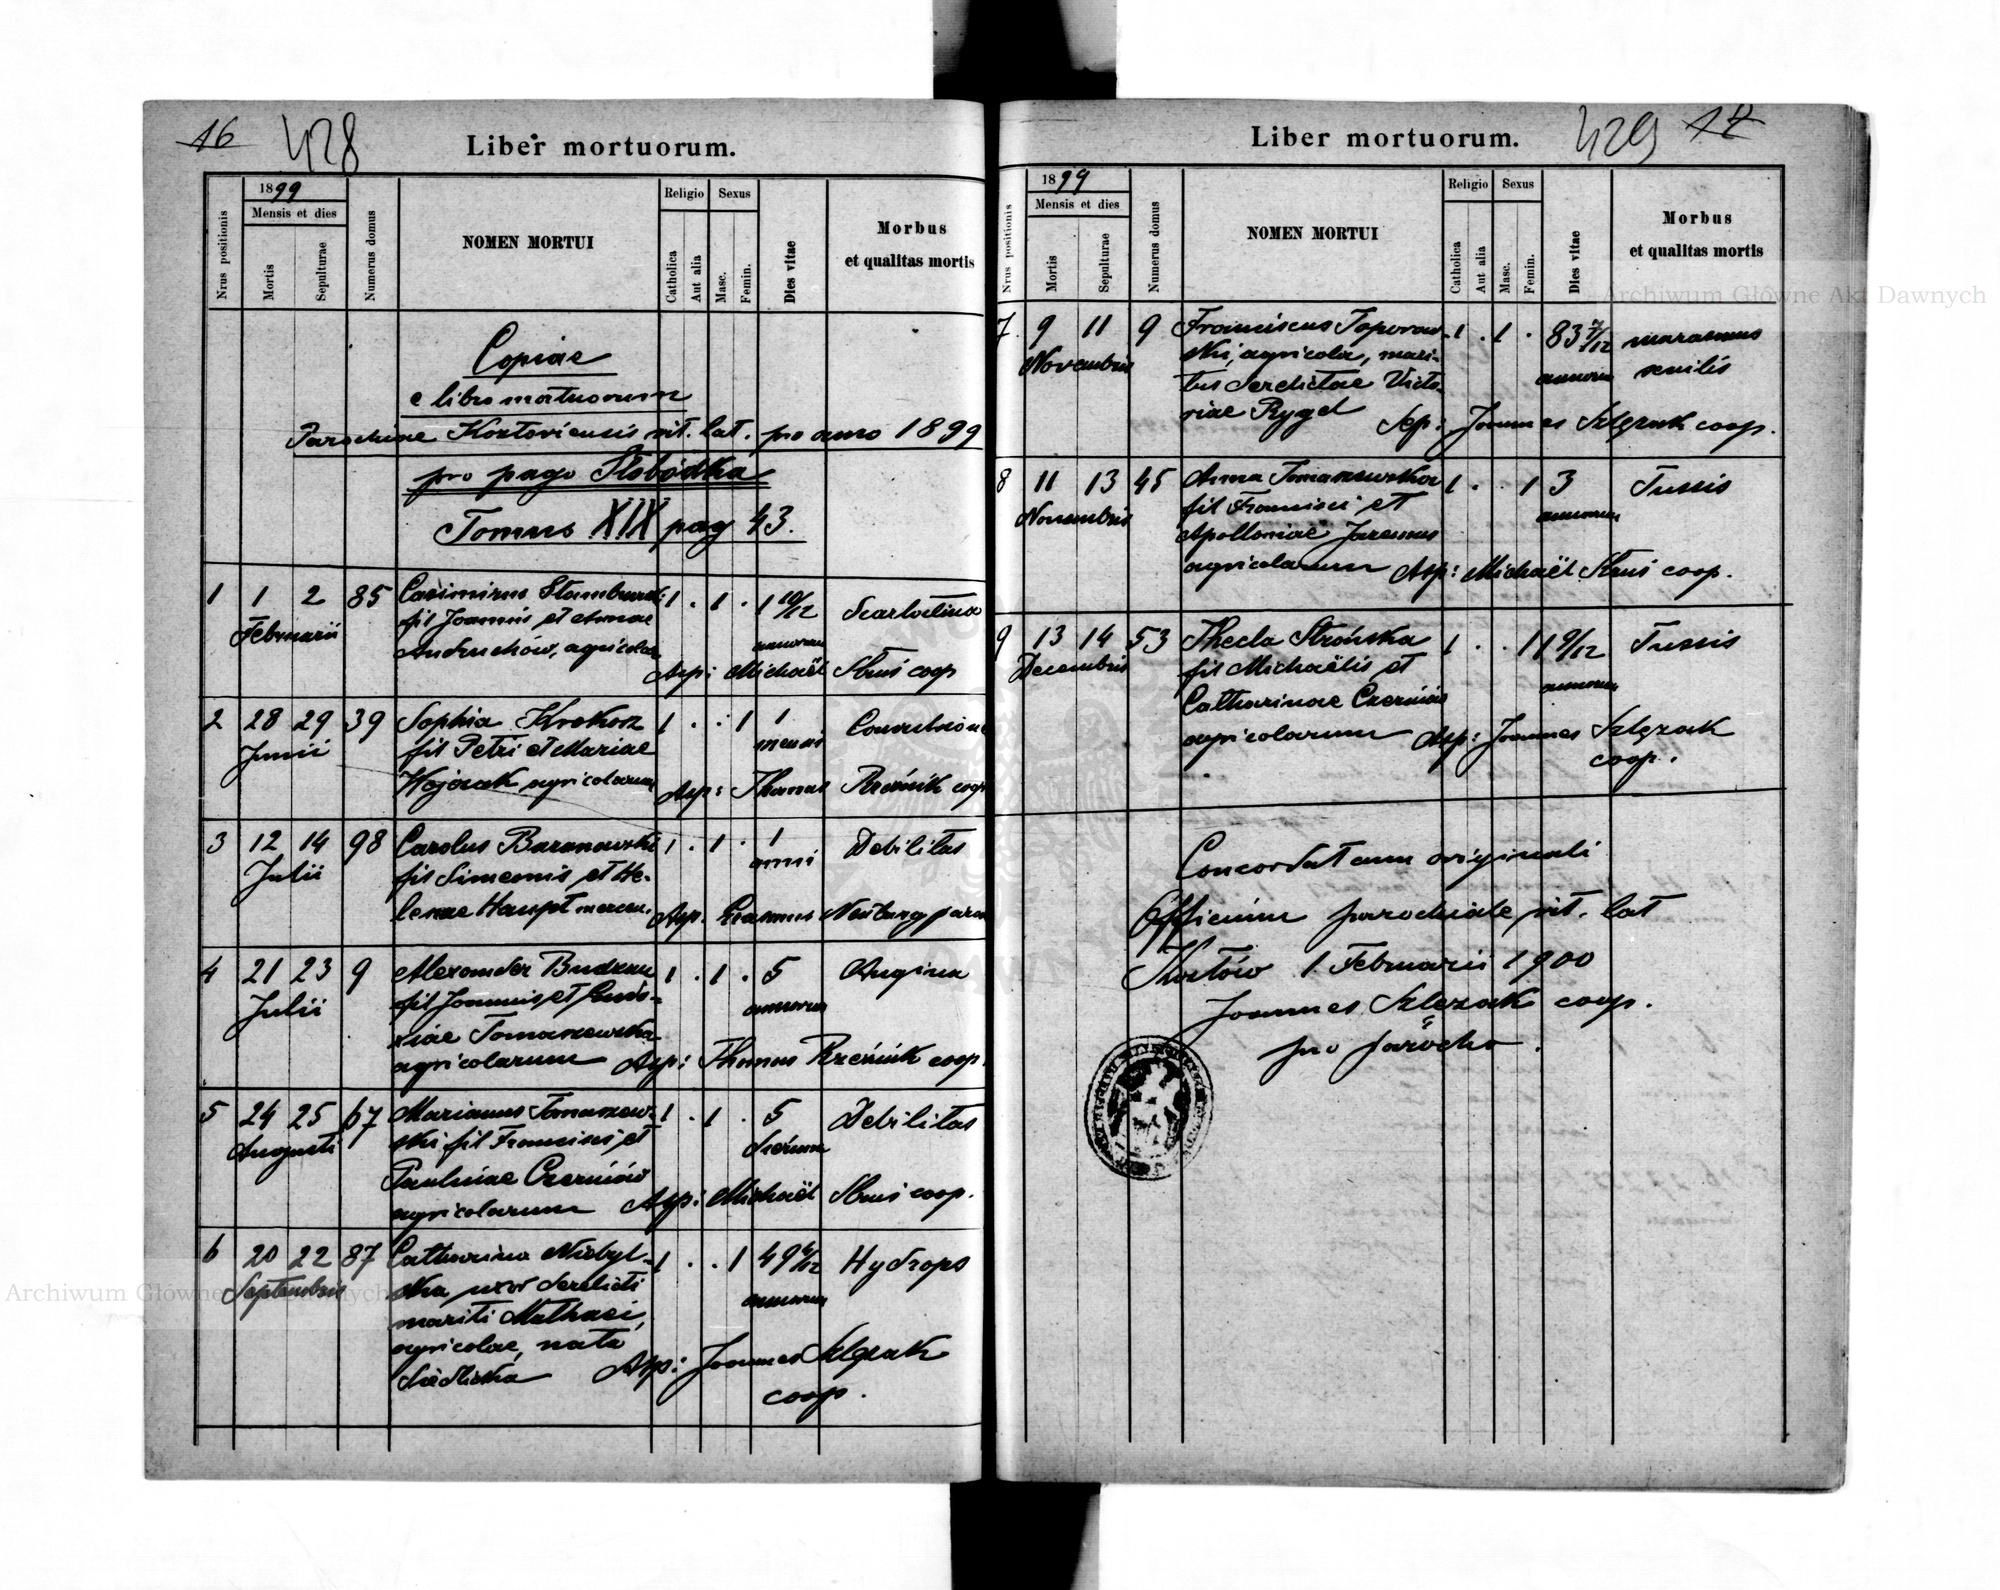 16 428
Liber mortuorum.
Nrus positionis
1899
Mensis et dies
Mortis
Sepulturae
Numerus domus
NOMEN MORTUI
Religio
Catholica
Aut alia
Sexus
Masc.
Femin.
Dies vitae
Morbus
et qualitas mortis
Copiae
e libro mortuorum
Parochiae Kozloviensis rit. lat. pro anno 1899
pro pago Słobódka
Tomus XIX pag 43.
1 1 2 85 Casimirus 1 . 1 . 1 10/12 Scarlatina
Februarii fil Joannis et Annae annorum
Andruchów, agricolar
Asp: Michaël Kruś coop
2 28 29 39 Sophia Krokosz 1 . . 1 1 Convulsione
Junii fil Petri et Mariae mensis
Wojczak agricolarum
Asp: Thomas Rześnik coop
3 12 14 98 Carolus Baranowski 1 . 1 . 1 Debilitas
Julii fil Simeonis et He- anni
lenae Haupt mercen.
Asp. Erasmus Neuburg paroch
4 21 23 9 Alexander 1 . 1 . 5 Angina
Julii fil Joannis et annorum
Tomaszewska
agricolarum Asp: Thomas Rześnik coop.
5 24 25 67 Marianus Tomaszew- 1 . 1 . 5 Debilitas
Augusti ski fil Francisci et dierum
Paulinae Czerniów
agricolarum Asp: Michaël Kruś coop.
6 20 22 87 Catharina Niebyl- 1 . . 1 49 6/12 Hydrops
Septembris ska uxor derelicti annorum
mariti Mathaei,
agricolae, nata
Siedlicka Asp: Joannes Szlęzak
coop.
Liber mortuorum.
429 17
Nrus positionis
1899
Mensis et dies
Mortis
Sepulturae
Numerus domus
NOMEN MORTUI
Religio
Catholica
Aut alia
Sexus
Masc.
Femin.
Dies vitae
Morbus
et qualitas mortis
7 9 11 9 Franciscus Toporow- 1 . 1 . 83 7/12 marasmus
Novembris ski, agricola, mari- annorum senilis
tus derelictae Victo
riae Rygel Sep: Joannes Szlęzak coop.
8 11 13 45 Anna Tomaszewska 1 . . 1 3 Tussis
Novembris fil Francisci et annorum
Apolloniae Jaremus
agricolarum Asp: Michaël Kruś coop.
9 13 14 53 Thecla Strońska 1 . . 1 1 9/12 Tussis
Decembris fil Michaëlis et annorum
Catharinae Czerniów
agricolarum Asp: Joannes Szlęzak
coop.
Concordat cum originali
Officium parochiale rit. lat
Kozłów 1 Februarii 1900
Joannes Szlęzak coop.
pro parocho.
Archiwum Główne Akt Dawnych
Archiwum Główne Akt Dawnych